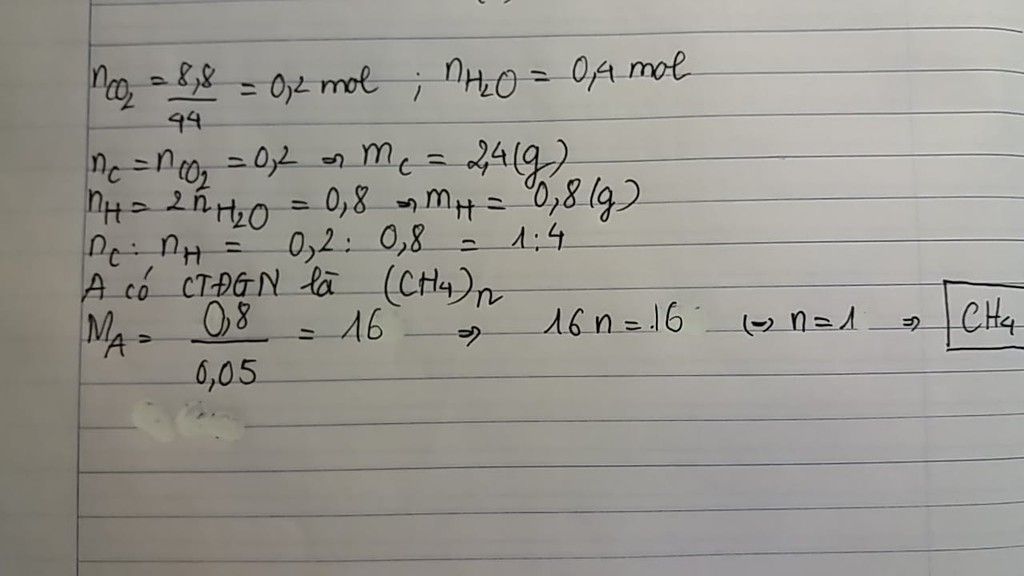 nCO2 = 8,8/44 = 0,2 mol ; nH2O = 0,4 mol
nC = nCO2 = 0,2 → mC = 2,4(g)
nH = 2nH2O = 0,8 → mH = 0,8(g)
nC : nH = 0,2 : 0,8 = 1:4
A có CTĐGN là (CH4)n
MA = 0,8/0,05 = 16 ⇒ 16n = 16 (=) n = 1 ⇒ CH4